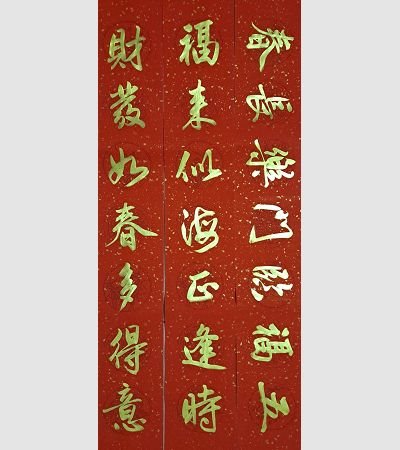 財發如春多得意
福來似海正逢時
五福臨門樂長春